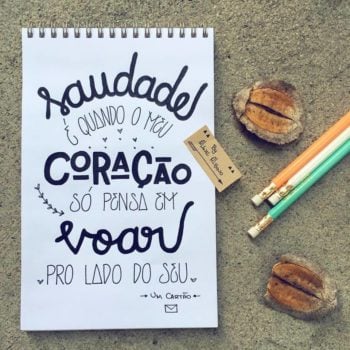 saudade
É QUANDO O MEU
CORAÇÃO
SÓ PENSA EM
voar
PRO LADO DO SEU
UM CARTÃO
By